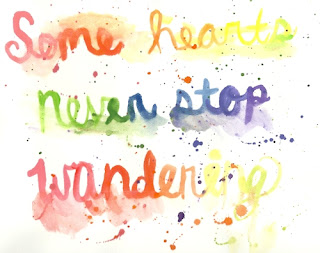 Some hearts
never stop
wandering